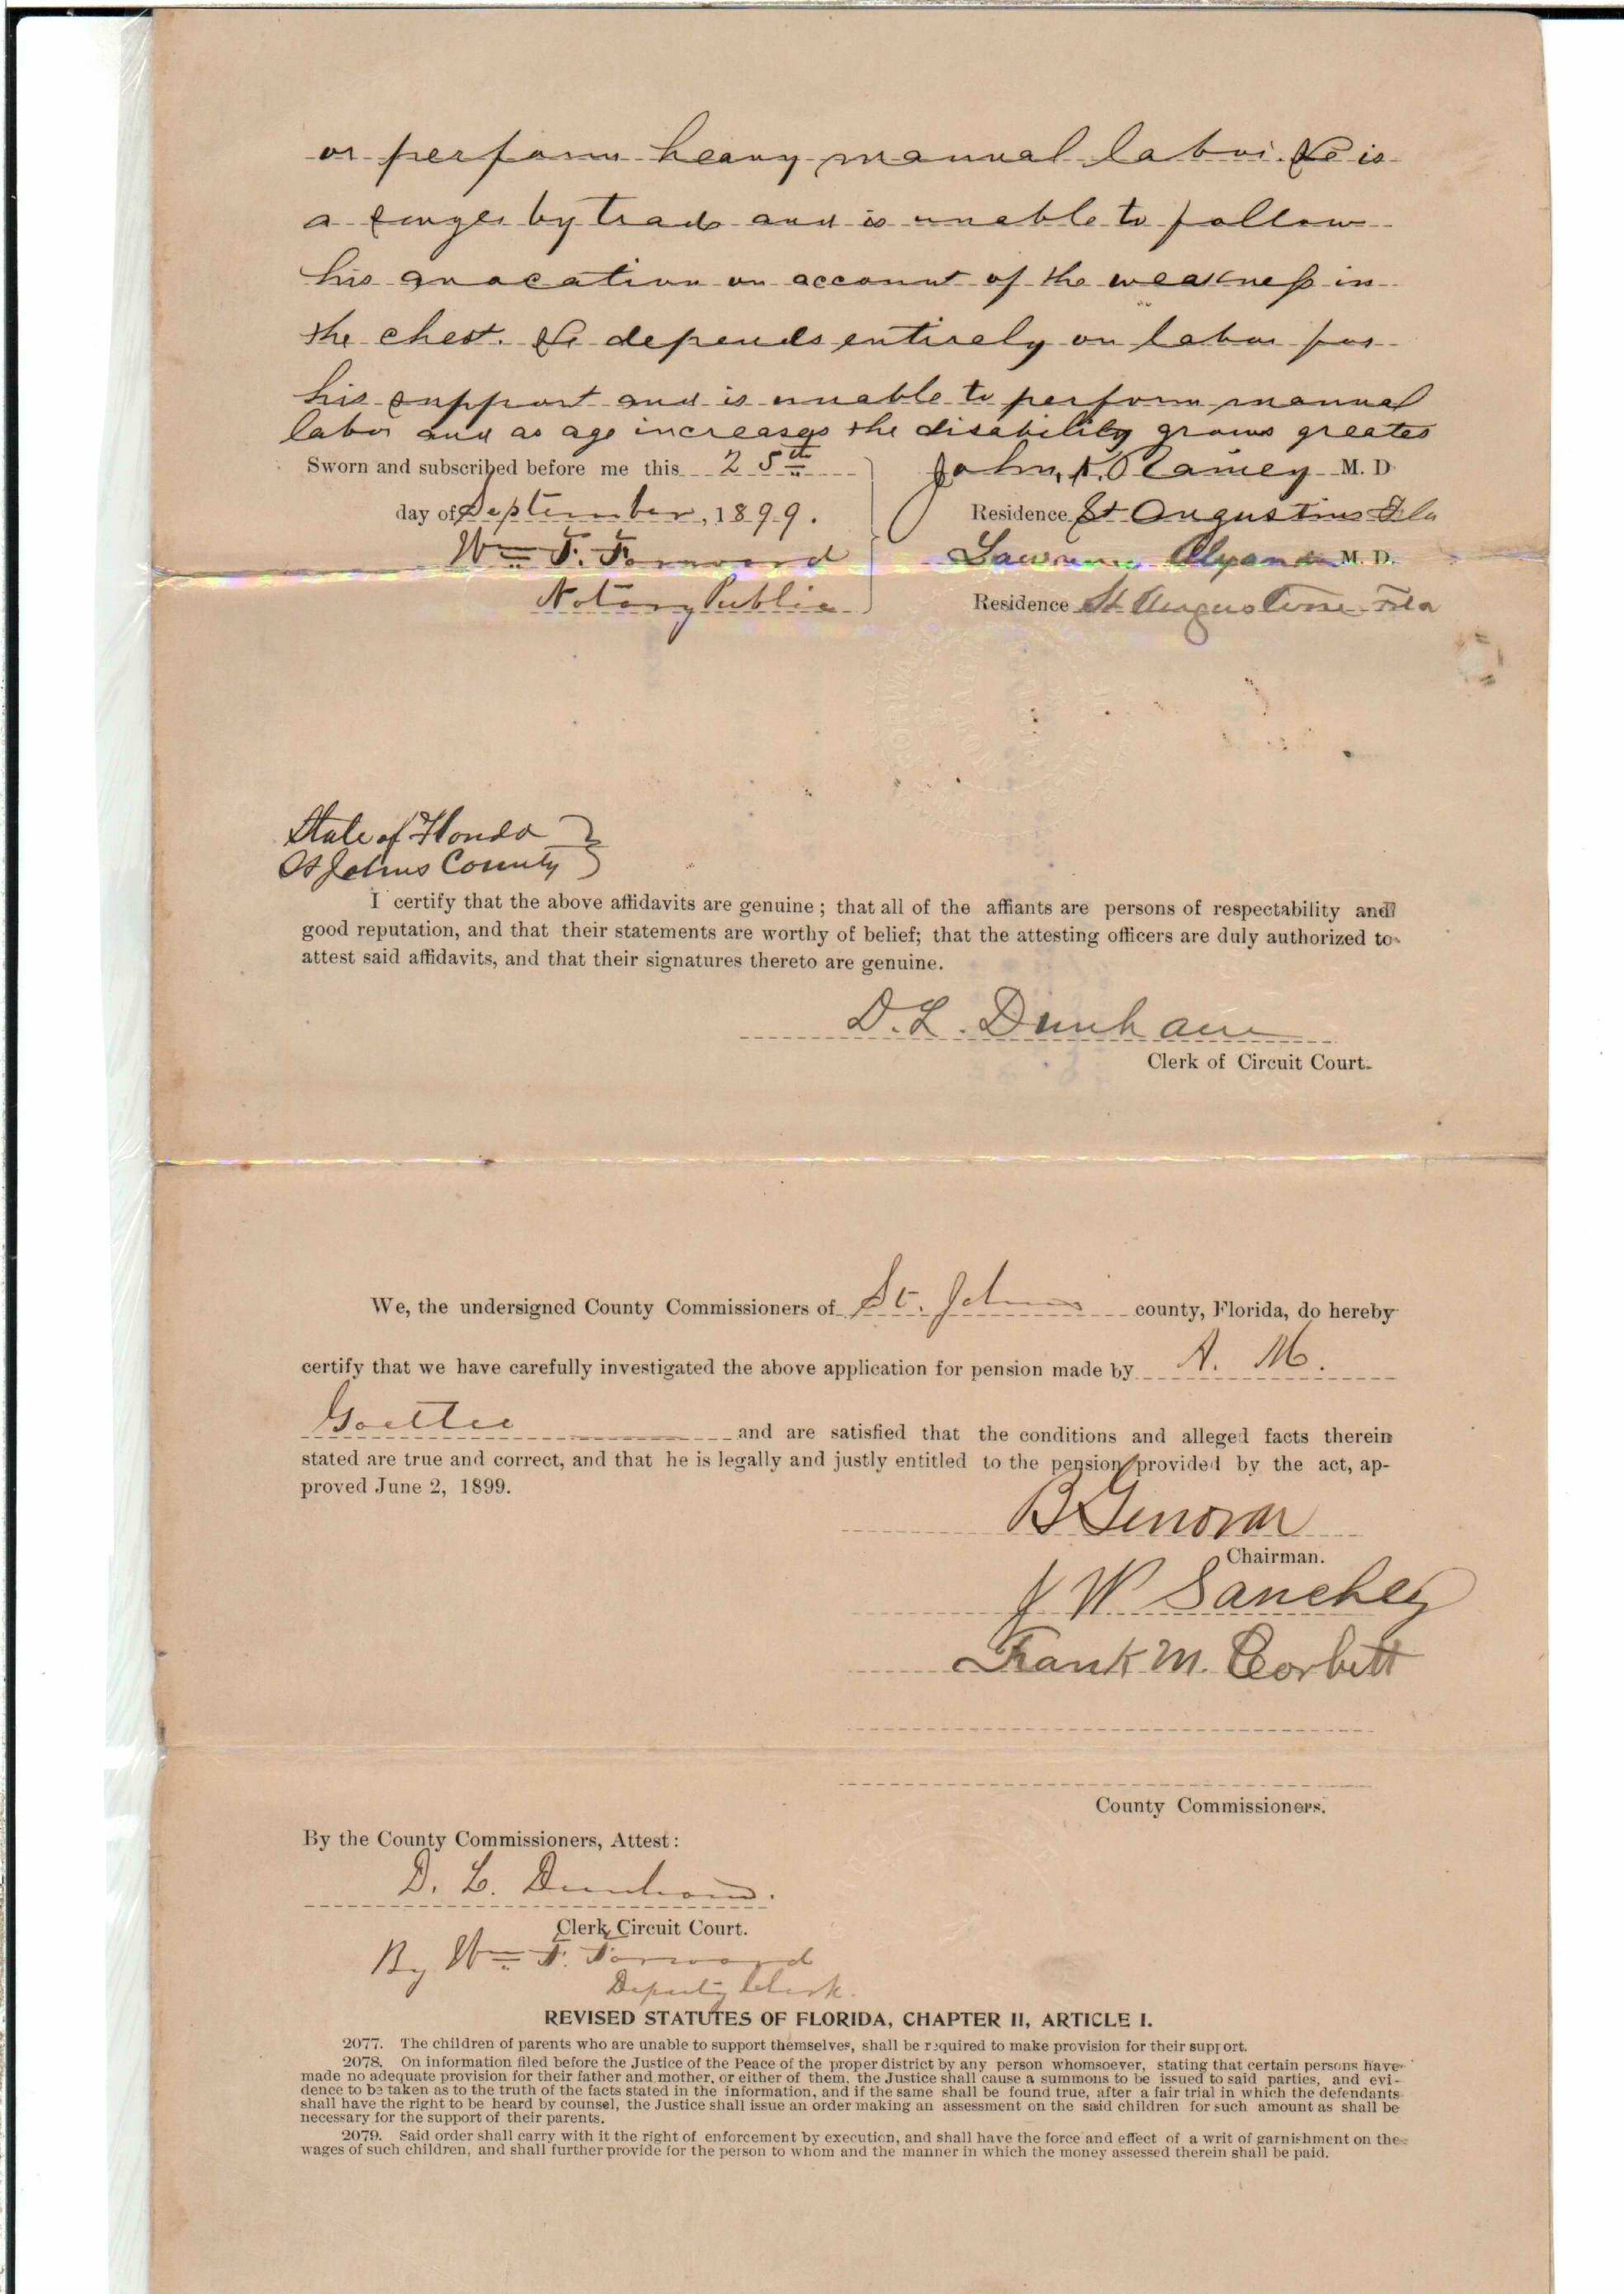 or perform heavy manual labor. He is
a by trade and is unable to follow
his avocation on account of the weakness in
the chest. He depends entirely on labor for
his support and is unable to perform manual
labor and as age increases the disability grows greater
Sworn and subscribed before me this 25th
day of September, 1899.
Wm F. Forward
Notary Public
John K. Rainey M. D
Residence St Augustine Fla
M. D.
Residence St Augustine Fla
State of Florida
St Johns County
I certify that the above affidavits are genuine; that all of the affiants are persons of respectability and
good reputation, and that their statements are worthy of belief; that the attesting officers are duly authorized to
attest said affidavits, and that their signatures thereto are genuine.
D. L. Dunham
Clerk of Circuit Court.
We, the undersigned County Commissioners of St. Johns county, Florida, do hereby
certify that we have carefully investigated the above application for pension made by A. M.
Goettee and are satisfied that the conditions and alleged facts therein
stated are true and correct, and that he is legally and justly entitled to the pension provided by the act, ap-
proved June 2, 1899.
B Genovar
Chairman.
J W Sanchez
Frank M. Corbett
County Commissioners.
By the County Commissioners, Attest:
D. L. Dunham.
Clerk Circuit Court.
By Wm F. Forward
Deputy Clerk.
REVISED STATUTES OF FLORIDA, CHAPTER II, ARTICLE I.
2077. The children of parents who are unable to support themselves, shall be required to make provision for their support.
2078. On information filed before the Justice of the Peace of the proper district by any person whomsoever, stating that certain persons have
made no adequate provision for their father and mother, or either of them, the Justice shall cause a summons to be issued to said parties, and evi-
dence to be taken as to the truth of the facts stated in the information, and if the same shall be found true, after a fair trial in which the defendants
shall have the right to be heard by counsel, the Justice shall issue an order making an assessment on the said children for such amount as shall be
necessary for the support of their parents.
2079. Said order shall carry with it the right of enforcement by execution, and shall have the force and effect of a writ of garnishment on the
wages of such children, and shall further provide for the person to whom and the manner in which the money assessed therein shall be paid.